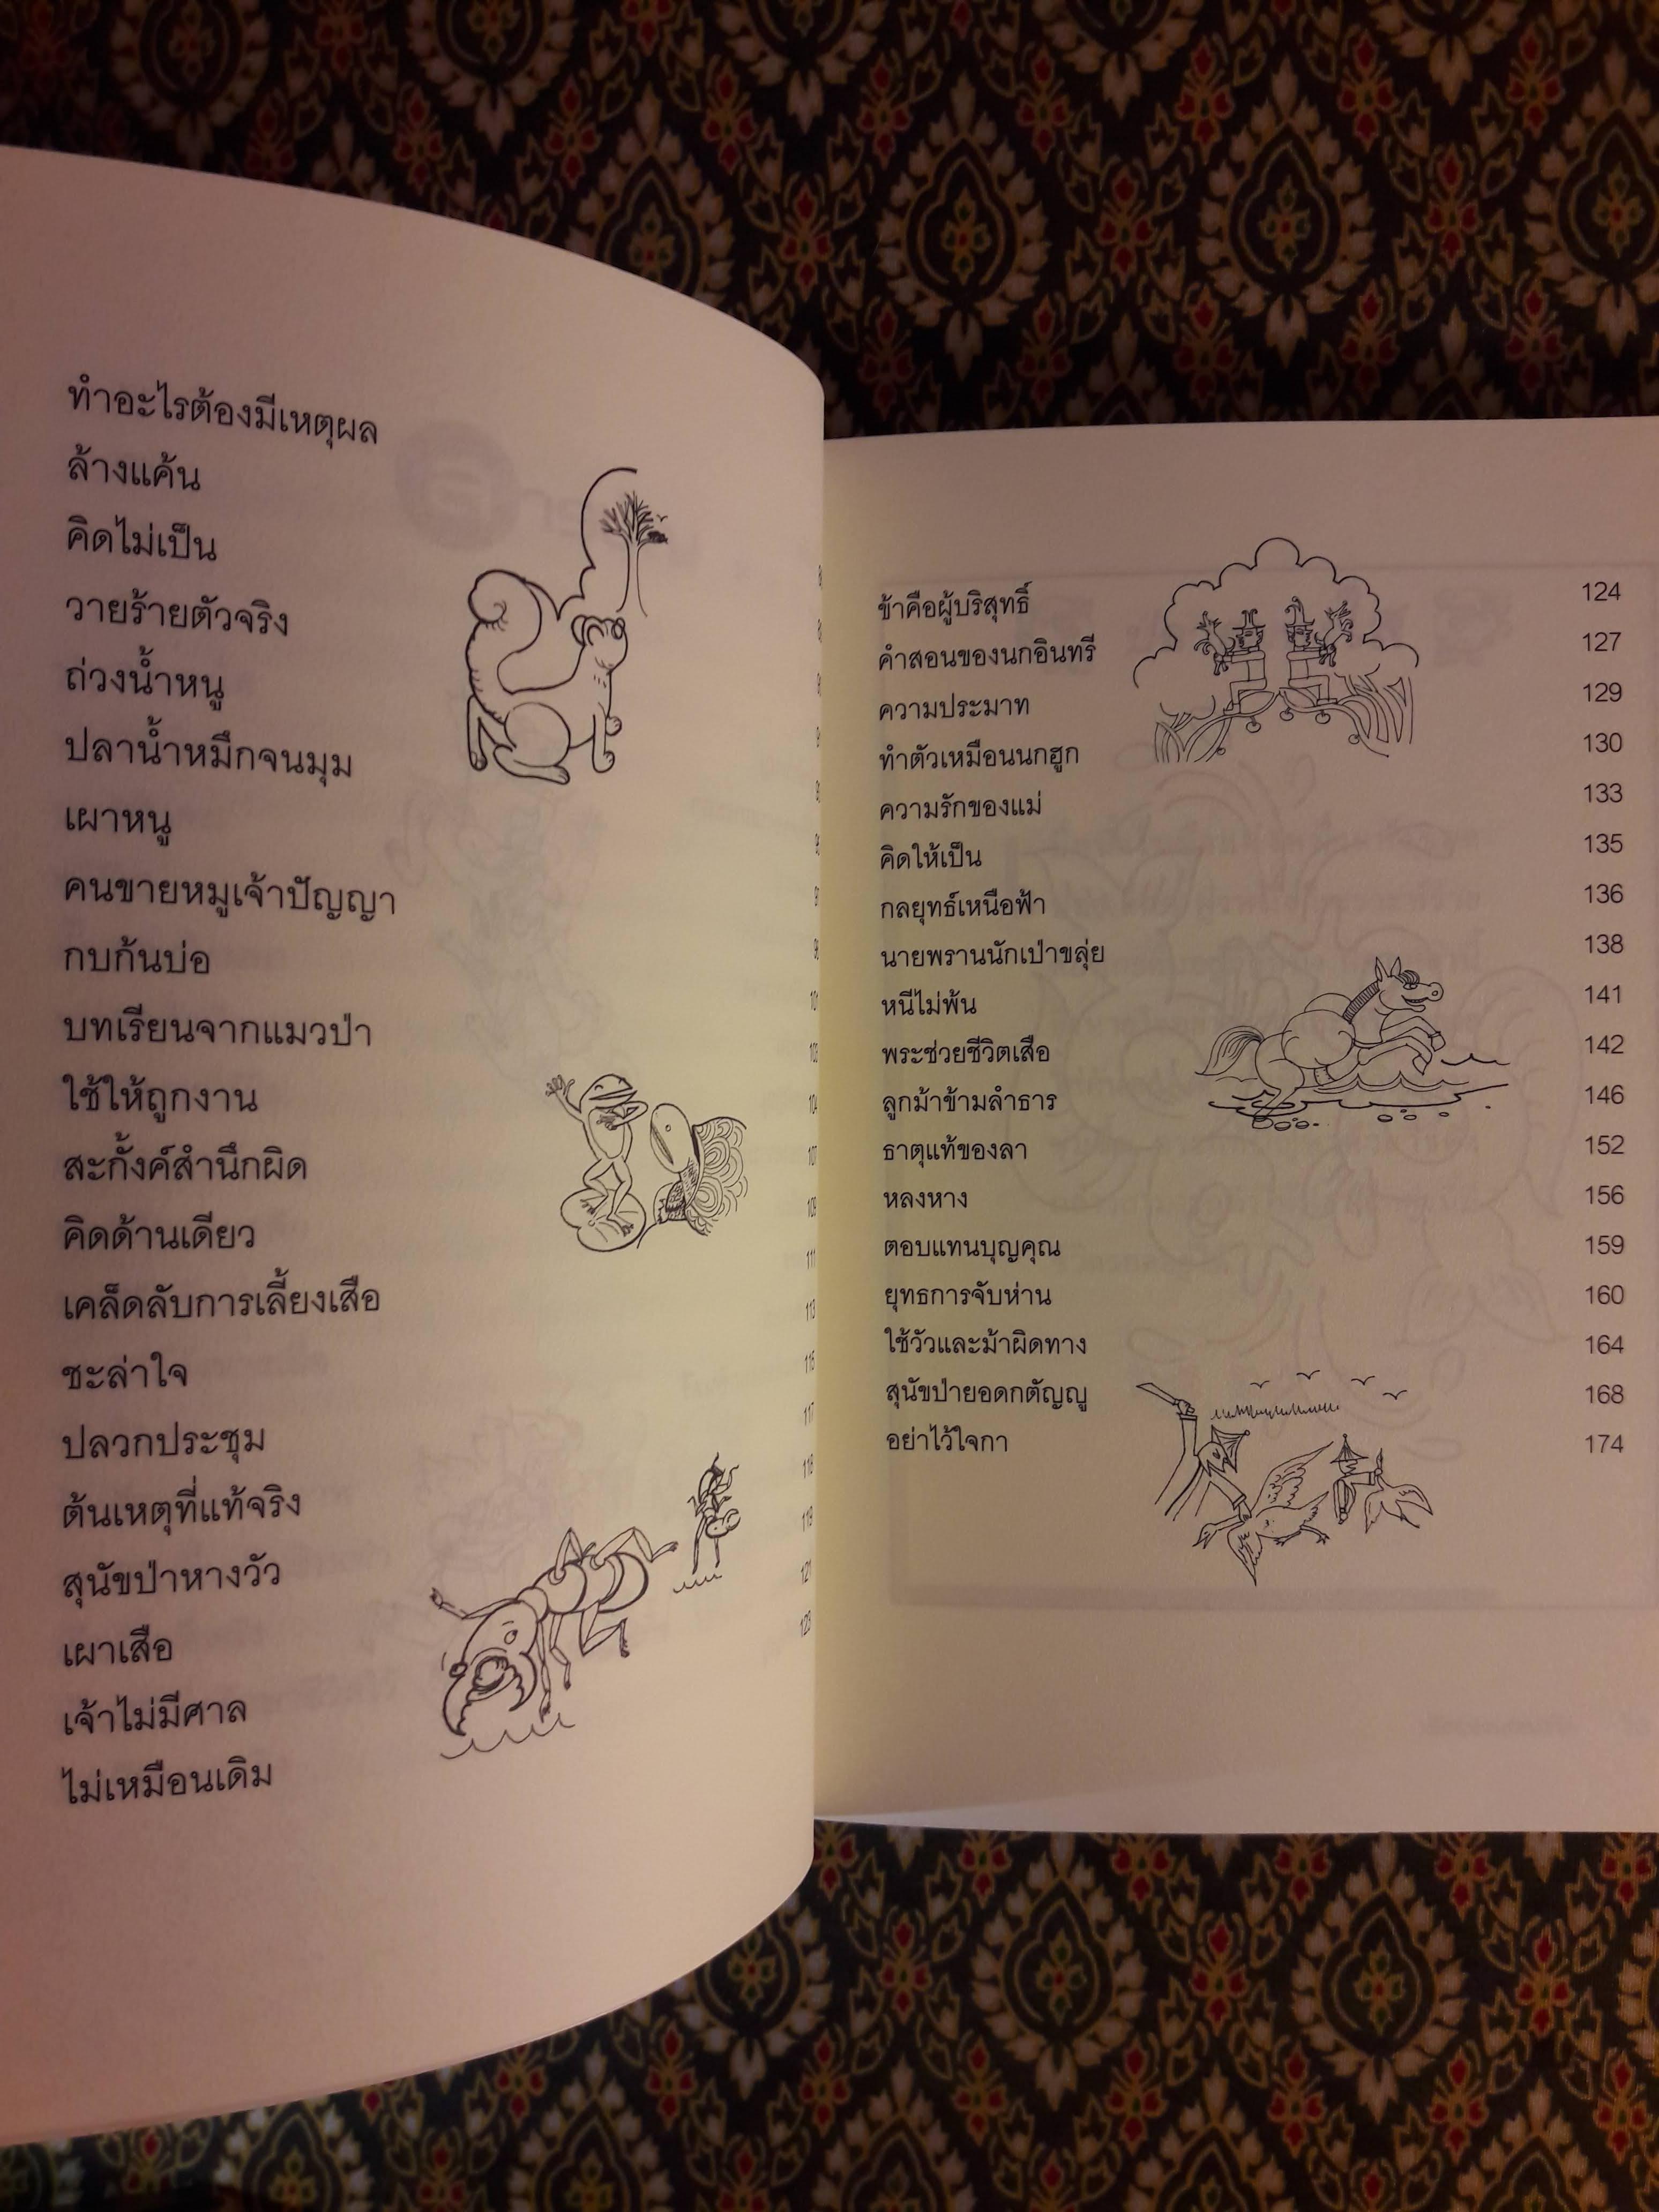 ทำอะไรต้องมีเหตุผล
ล้างแค้น
คิดไม่เป็น
วายร้ายตัวจริง
ถ่วงน้ำหนู
ปลาน้ำหมึกจนมุม
เผาหนู
คนขายหมูเจ้าปัญญา
กบก้นบ่อ
บทเรียนจากแมวป่า 101
ใช้ให้ถูกงาน
สะกั้งค์สำนึกผิด
คิดด้านเดียว
เคล็ดลับการเลี้ยงเสือ
ชะล่าใจ
ปลวกประชุม
ต้นเหตุที่แท้จริง
สุนัขป่าหางวัว
เผาเสือ
เจ้าไม่มีศาล
ไม่เหมือนเดิม
103
104
107
109
111
113
115
117
118
119
121
123
ข้าคือผู้บริสุทธิ์ 124
คำสอนของนกอินทรี 127
ความประมาท 129
ทำตัวเหมือนนกฮูก 130
ความรักของแม่ 133
คิดให้เป็น 135
กลยุทธ์เหนือฟ้า 136
นายพรานนักเป่าขลุ่ย 138
หนีไม่พ้น 141
พระช่วยชีวิตเสือ 142
ลูกม้าข้ามลำธาร 146
ธาตุแท้ของลา 152
หลงหาง 156
ตอบแทนบุญคุณ 159
ยุทธการจับห่าน 160
ใช้วัวและม้าผิดทาง 164
สุนัขป่ายอดกตัญญู 168
อย่าไว้ใจกา 174